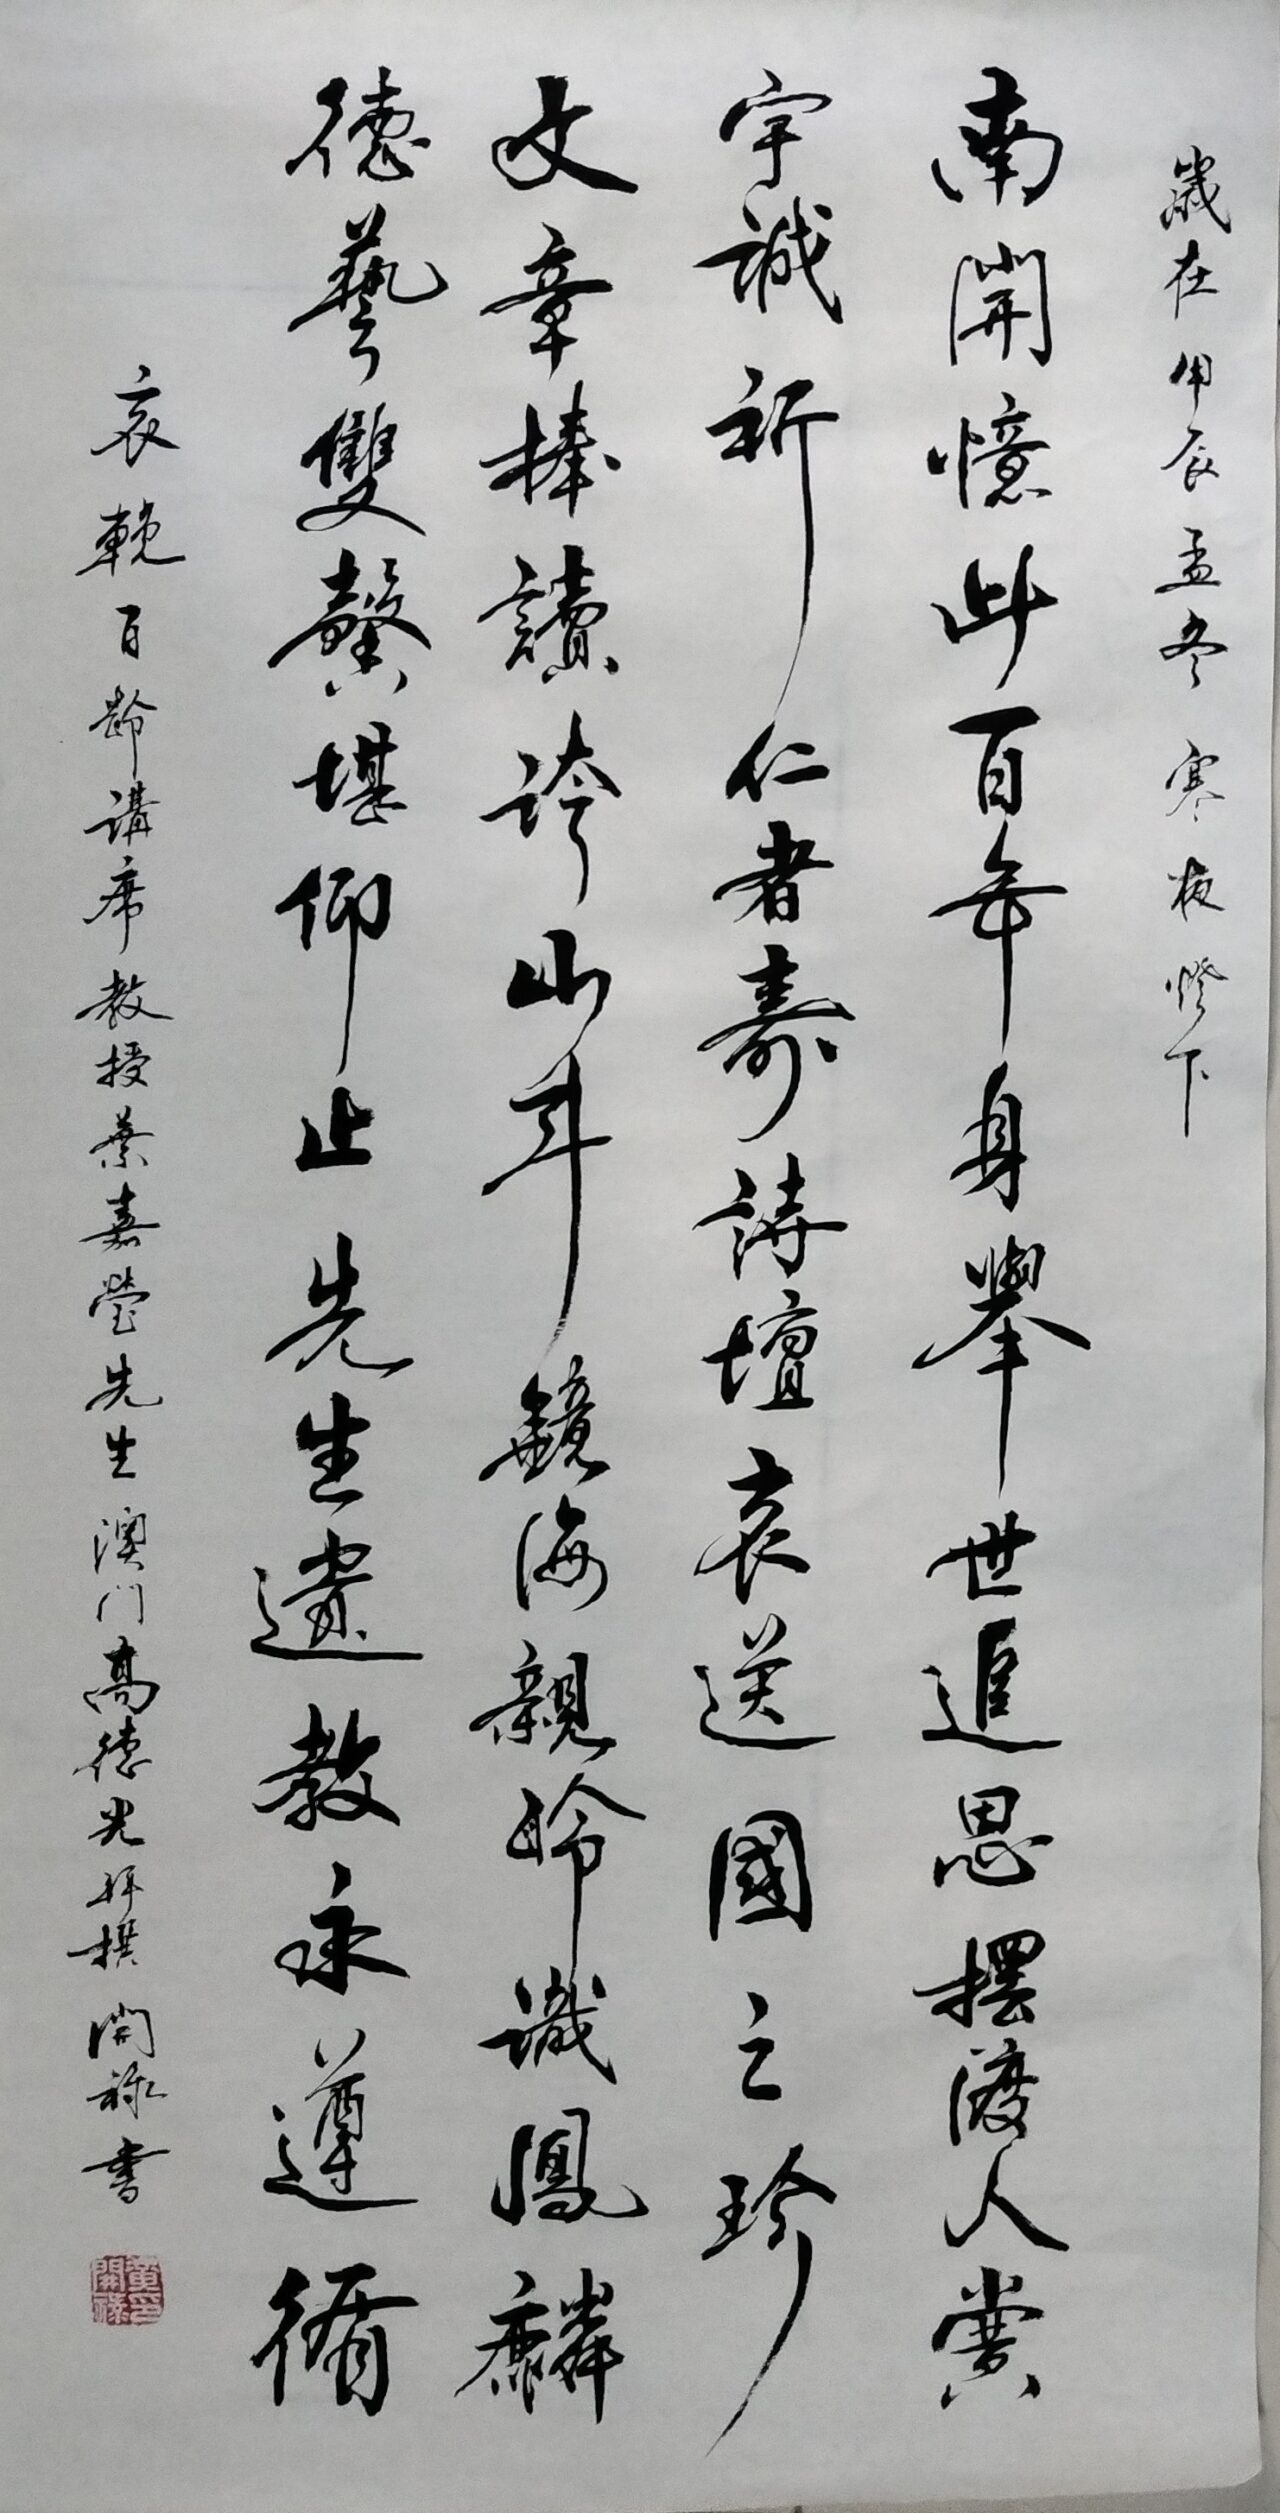 歲在甲辰孟冬寒夜燈下
南開憶此百年身舉世追思擺渡人寰
宇誠祈仁者壽詩壇哀送國之珍
文章捧讀誇山斗鏡海親聆識鳳麟
德藝雙馨堪仰止先生遺教永遵循
哀輓百齡講席教授葉嘉瑩先生澳門高德光拜撰開祿書
黃開祿印